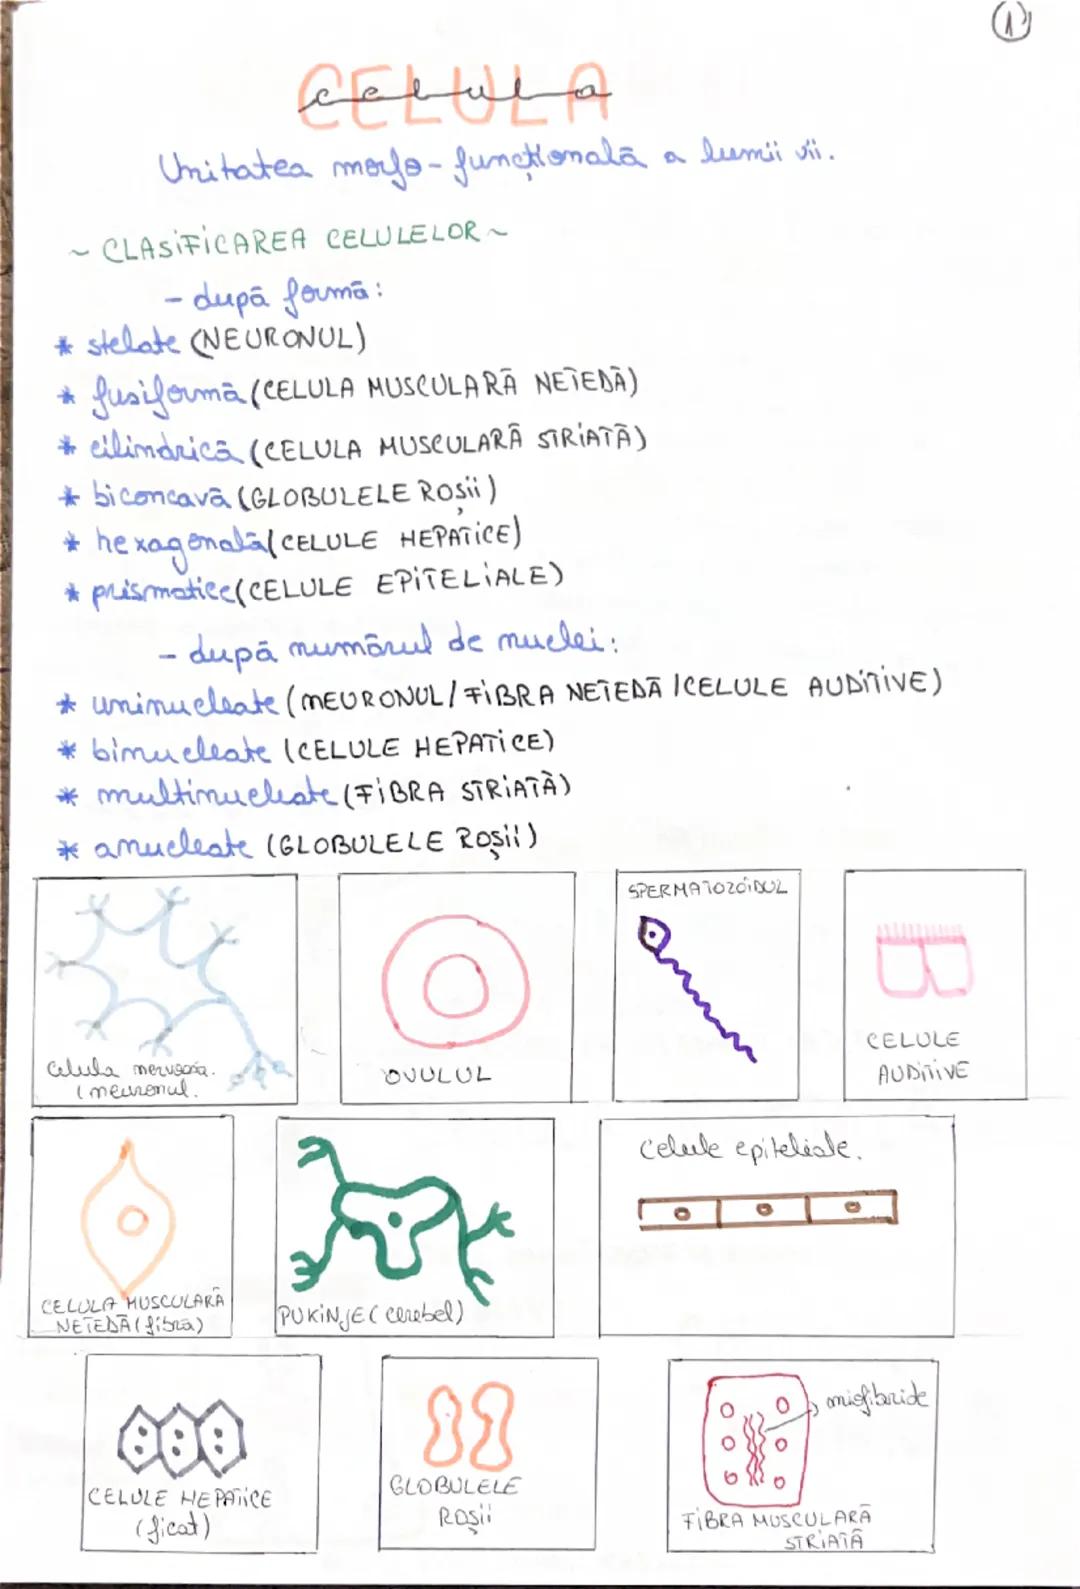 1
CELULA
celula
Unitatea morfo-funcțională a lumii vii.
~ CLASIFICAREA CELULELOR ~
- după formă:
* stelate (NEURONUL)
* fusiformă (CELULA MUSCULARĂ NETEDĂ)
* cilindrică (CELULA MUSCULARĂ STRIATĂ)
* biconcavă (GLOBULELE ROȘII)
* hexagonală (CELULE HEPATICE)
* prismatice (CELULE EPITELIALE)
- după numărul de nuclei:
* uninucleate (NEURONUL/FIBRA NETEDĂ/CELULE AUDITIVE)
* binucleate (CELULE HEPATICE)
* multinucleate (FIBRA STRIATĂ)
* anucleate (GLOBULELE ROȘII)
celula nervoasa.
(neuronul.
OVULUL
SPERMATOZOIDUL
CELULE
AUDITIVE
CELULA MUSCULARĂ
NETEDĂ (fibra)
PUKINJE (cerebel)
Celule epiteliale.
CELULE HEPATICE
(ficat)
GLOBULELE
ROȘII
FIBRA MUSCULARĂ
STRIATĂ